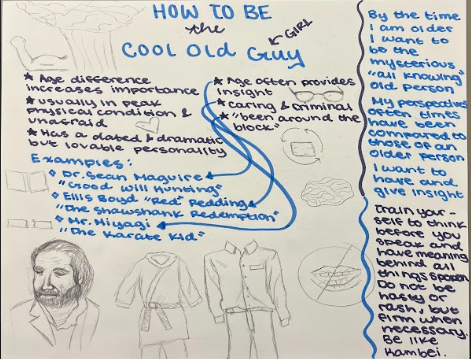 HOW TO BE
the
COOL OLD GUY
GIRL
★ Age difference
increases importance
★ usually in peak
physical condition &
unafraid
★ Has a dated & dramatic
but lovable personality
★ Age often provides
insight
★ caring & criminal
★ "been around the
block"
Examples:
Dr. Sean Maguire
"Good Will Hunting"
Ellis Boyd "Red" Redding
"The Shawshank Redemption"
Mr. Miyagi
"The Karate Kid"
By the time
I am older
I want to
be the
mysterious,
"all knowing"
old person
My perspective
often times
have been
compared to
those of an
older person
I want to
have and
give insight
Train your-
self to think
before you
speak and
have meaning
behind all
things spoken
Do not be
hasty or
rash, but
firm when
necessary.
Be like
Kambei.